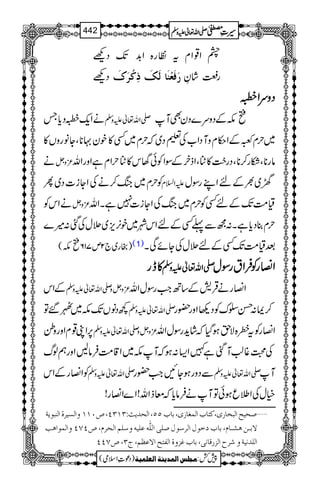 442
سیرتِ مصطفیٰ صلی اللہ تعالیٰ علیہ وسلم
چشم اقوام یہ نظارہ ابد تک دیکھے
رفعت شانِ رَفَعْنَا لَكَ ذِکْرَكَ دیکھے
دوسرا خطبہ
فتح مکہ کے دوسرے دن بھی آپ صلی اللہ تعالیٰ علیہ وسلم نے ایک خطبہ دیا جس
میں حرم کعبہ کے احکام و آداب کی تعلیم دی کہ حرم میں کسی کا خون بہانا، جانوروں کا
مارنا، شکار کرنا، درخت کاٹنا، اذخر کے سوا کوئی گھاس کاٹنا حرام ہے اور اللہ عزوجل نے
گھڑی بھر کے لئے اپنے رسول علیہ السلام کو حرم میں جنگ کرنے کی اجازت دی پھر
قیامت تک کے لئے کسی کو حرم میں جنگ کی اجازت نہیں ہے۔ اللہ عزوجل نے اس کو
حرم بنا دیا ہے۔ نہ مجھ سے پہلے کسی کے لئے اس شہر میں خونریزی حلال کی گئی نہ میرے
بعد قیامت تک کسی کے لئے حلال کی جائے گی۔(1) (بخاری ج۲ ص۶۱۷ فتح مکہ)
انصار کو فراق رسول صلی اللہ تعالیٰ علیہ وسلم کا ڈر
انصار نے قریش کے ساتھ جب رسول اللہ عزوجل و صلی اللہ تعالیٰ علیہ وسلم کے اس
کریمانہ حسن سلوک کو دیکھا اور حضور صلی اللہ تعالیٰ علیہ وسلم کچھ دنوں تک مکہ میں ٹھہر گئے تو
انصار کو یہ خطرہ لاحق ہو گیا کہ شاید رسول اللہ عزوجل و صلی اللہ تعالیٰ علیہ وسلم پر اپنی قوم اور وطن
کی محبت غالب آ گئی ہے کہیں ایسا نہ ہو کہ آپ مکہ میں اقامت فرما لیں اور ہم لوگ
آپ صلی اللہ تعالیٰ علیہ وسلم سے دور ہو جائیں جب حضور صلی اللہ تعالیٰ علیہ وسلم کو انصار کے اس
خیال کی اطلاع ہوئی تو آپ نے فرمایا کہ معاذ اللہ! اے انصار!
......صحیح البخاری، کتاب المغازی، باب ۵۵، الحدیث:۴۳۱۳، ص۱۱۰ والسیرۃ النبویۃ
لابن هشام، باب دخول الرسول صلی اللہ علیہ وسلم الحرم، ص۴۷۴ والمواهب
اللدنیة و شرح الزرقانی، باب غزوة الفتح الاعظم، ج۳، ص۴۴۷
پیش کش: مجلس المدینة العلمیة (دعوت اسلامی)